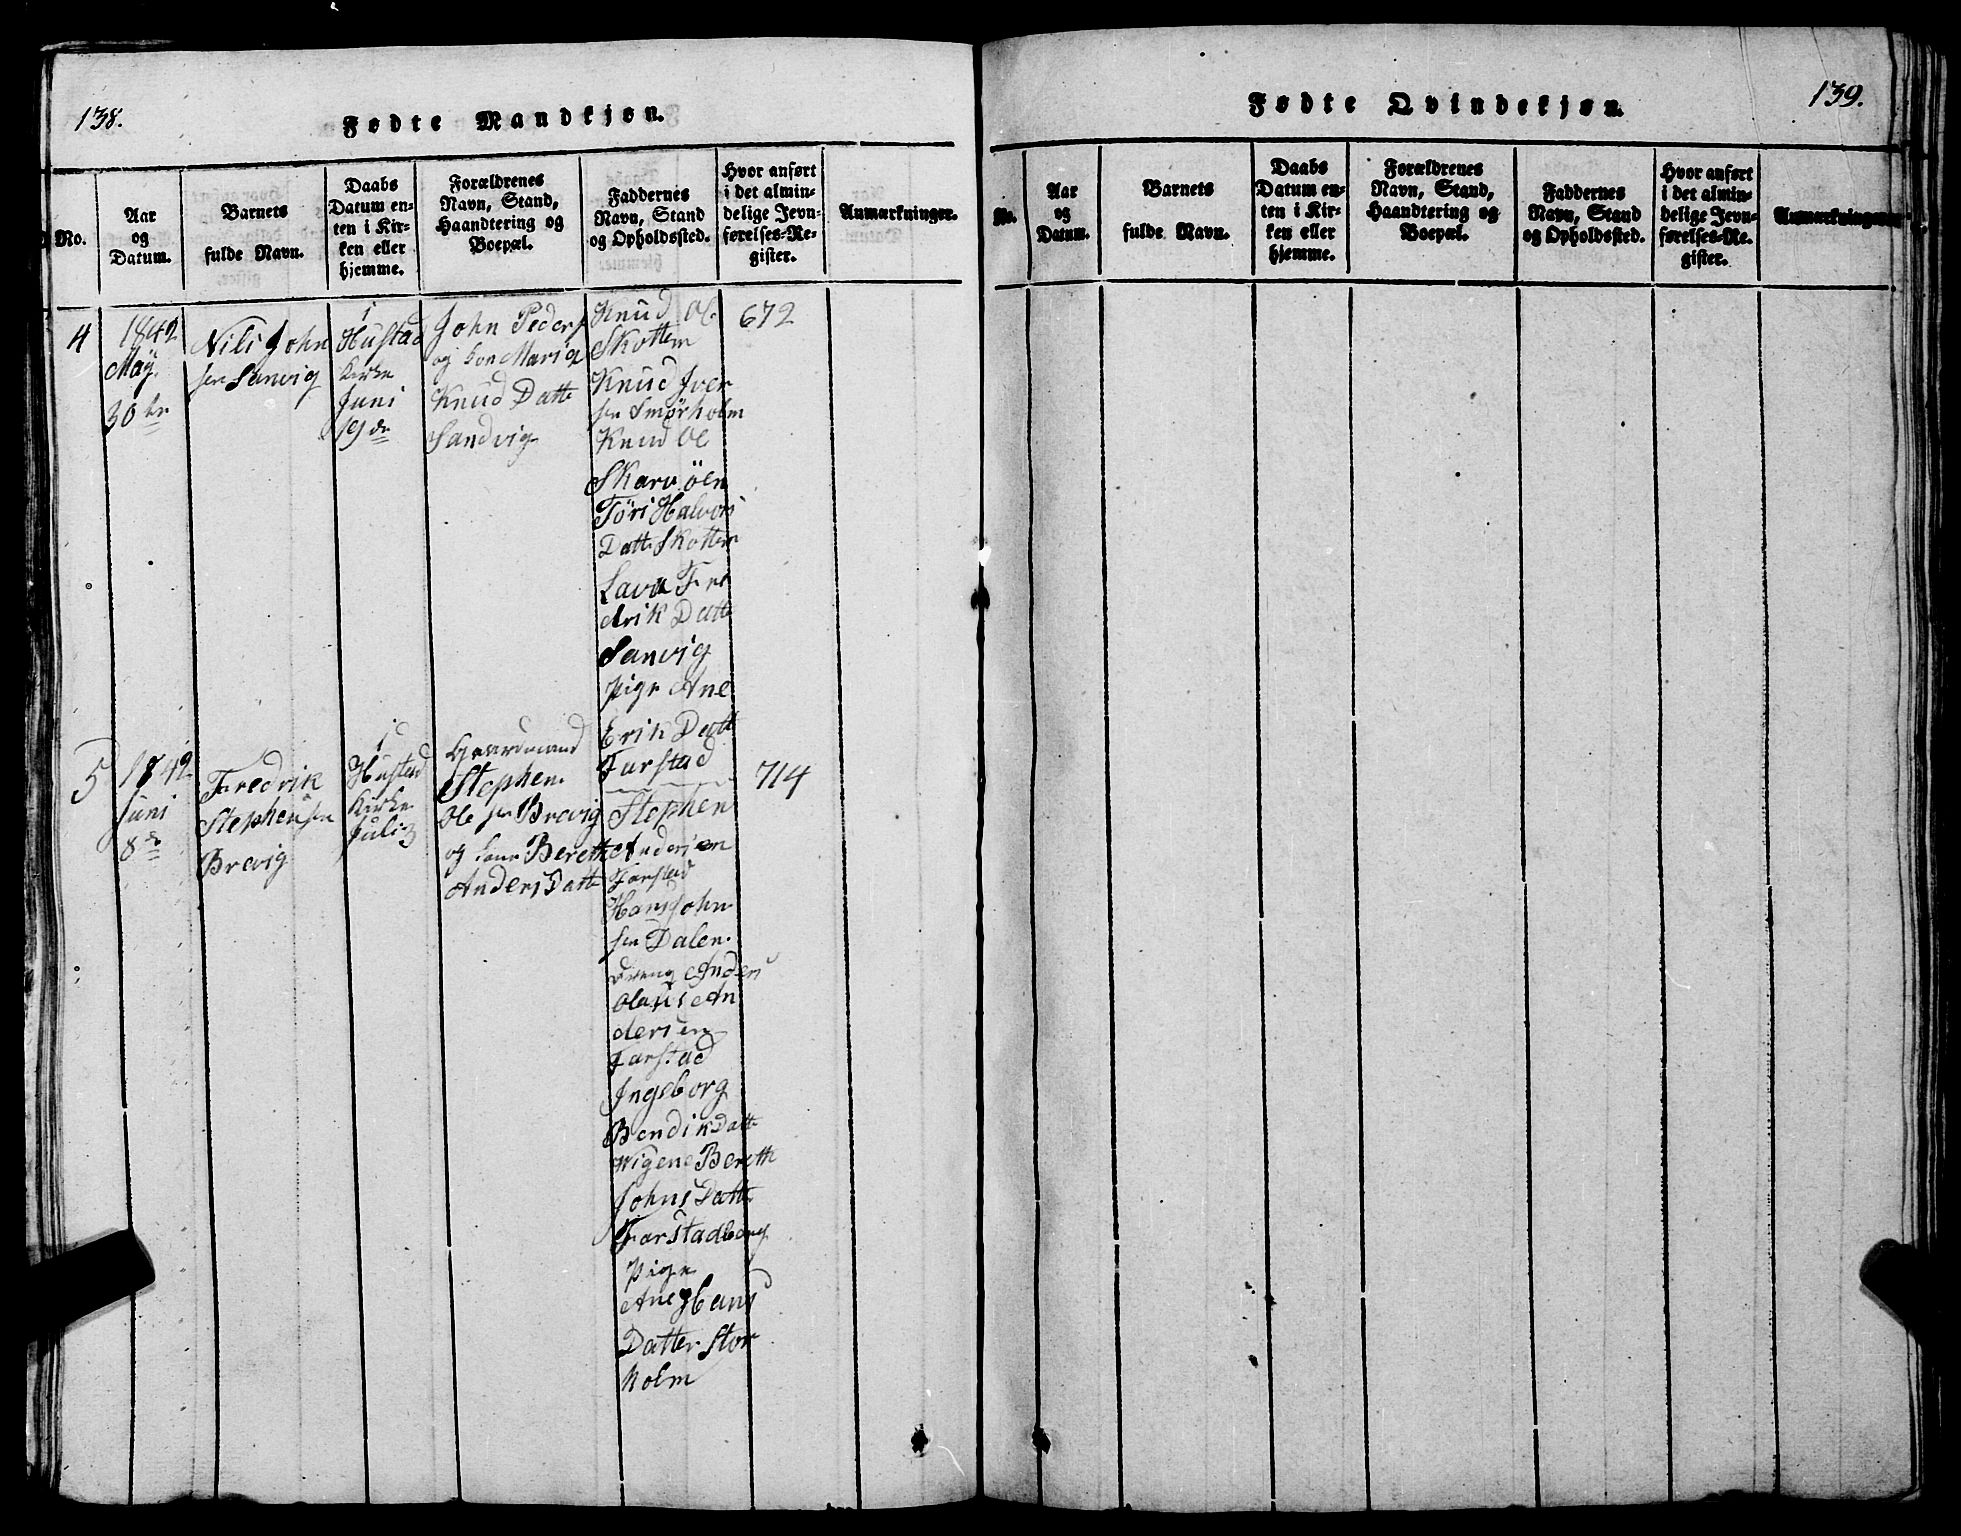 138.
Fødte Mandkjøn.
No.
Aar
og
Datum.
Barnets
fulde Navn.
Daabs
Datum en-
ten i Kir-
ken eller
hjemme.
Forældrenes
Navn, Stand,
Haandtering og
Boepæl.
Faddernes
Navn, Stand
og Opholdssted.
Hvor anført
i det almin-
delige Jevn-
førelses-Re-
gister.
Anmærkninger.
4
1842
May
30 te
Nils John
sen Sanvig
i
Hustad
Kirke
Juni
19 de
John Peders
og Kone Marie
Knud Datte
Sandvig
Knud Ol
Skottem
Knud Iver
sen Smørholm
Knud Ol
Skarv öen
Töri Halvors
Datte Skottem
Lava Fre
drik Datte
Sanvig
Pige Ane
Erik Datt
Farstad
672
5
1842
Juni
8 de
Fredrik
Stephensen
Brevig
i
Hustad
Kirke
Juli 3
Gaardmand
Stephen
Ole sen Brevig
og Kone Bereth
Anders Datte
Stephen
Andersen
Farstad
Hans John
sen Dalen
Dreng Anders
Olaus An
dersen
Farstad
Ingeborg
Bendik Datte
Wigene Bereth
Johns Datte
Farstadbang
Pige
Ane Hans
Datter Stor
holm
714
139.
Fødte Qvindekjøn.
No.
Aar
og
Datum.
Barnets
fulde Navn.
Daabs
Datum en-
ten i Kir-
ken eller
hjemme.
Forældrenes
Navn, Stand,
Haandtering og
Boepæl.
Faddernes
Navn, Stand
og Opholdssted.
Hvor anført
i det almin-
delige Jevn-
førelses-Re-
gister.
Anmærkninger.